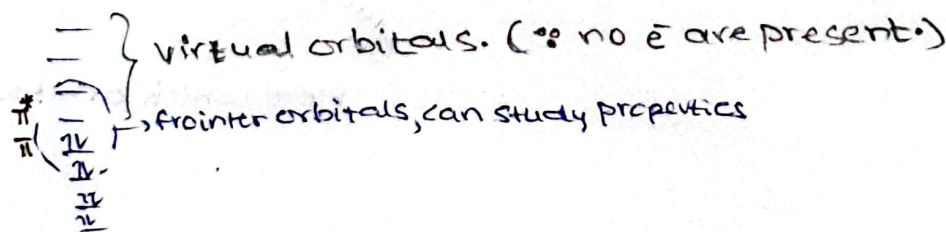 virtual orbitals. (∵ no ē are present.)
π*
→ frointer orbitals, can study properties
π